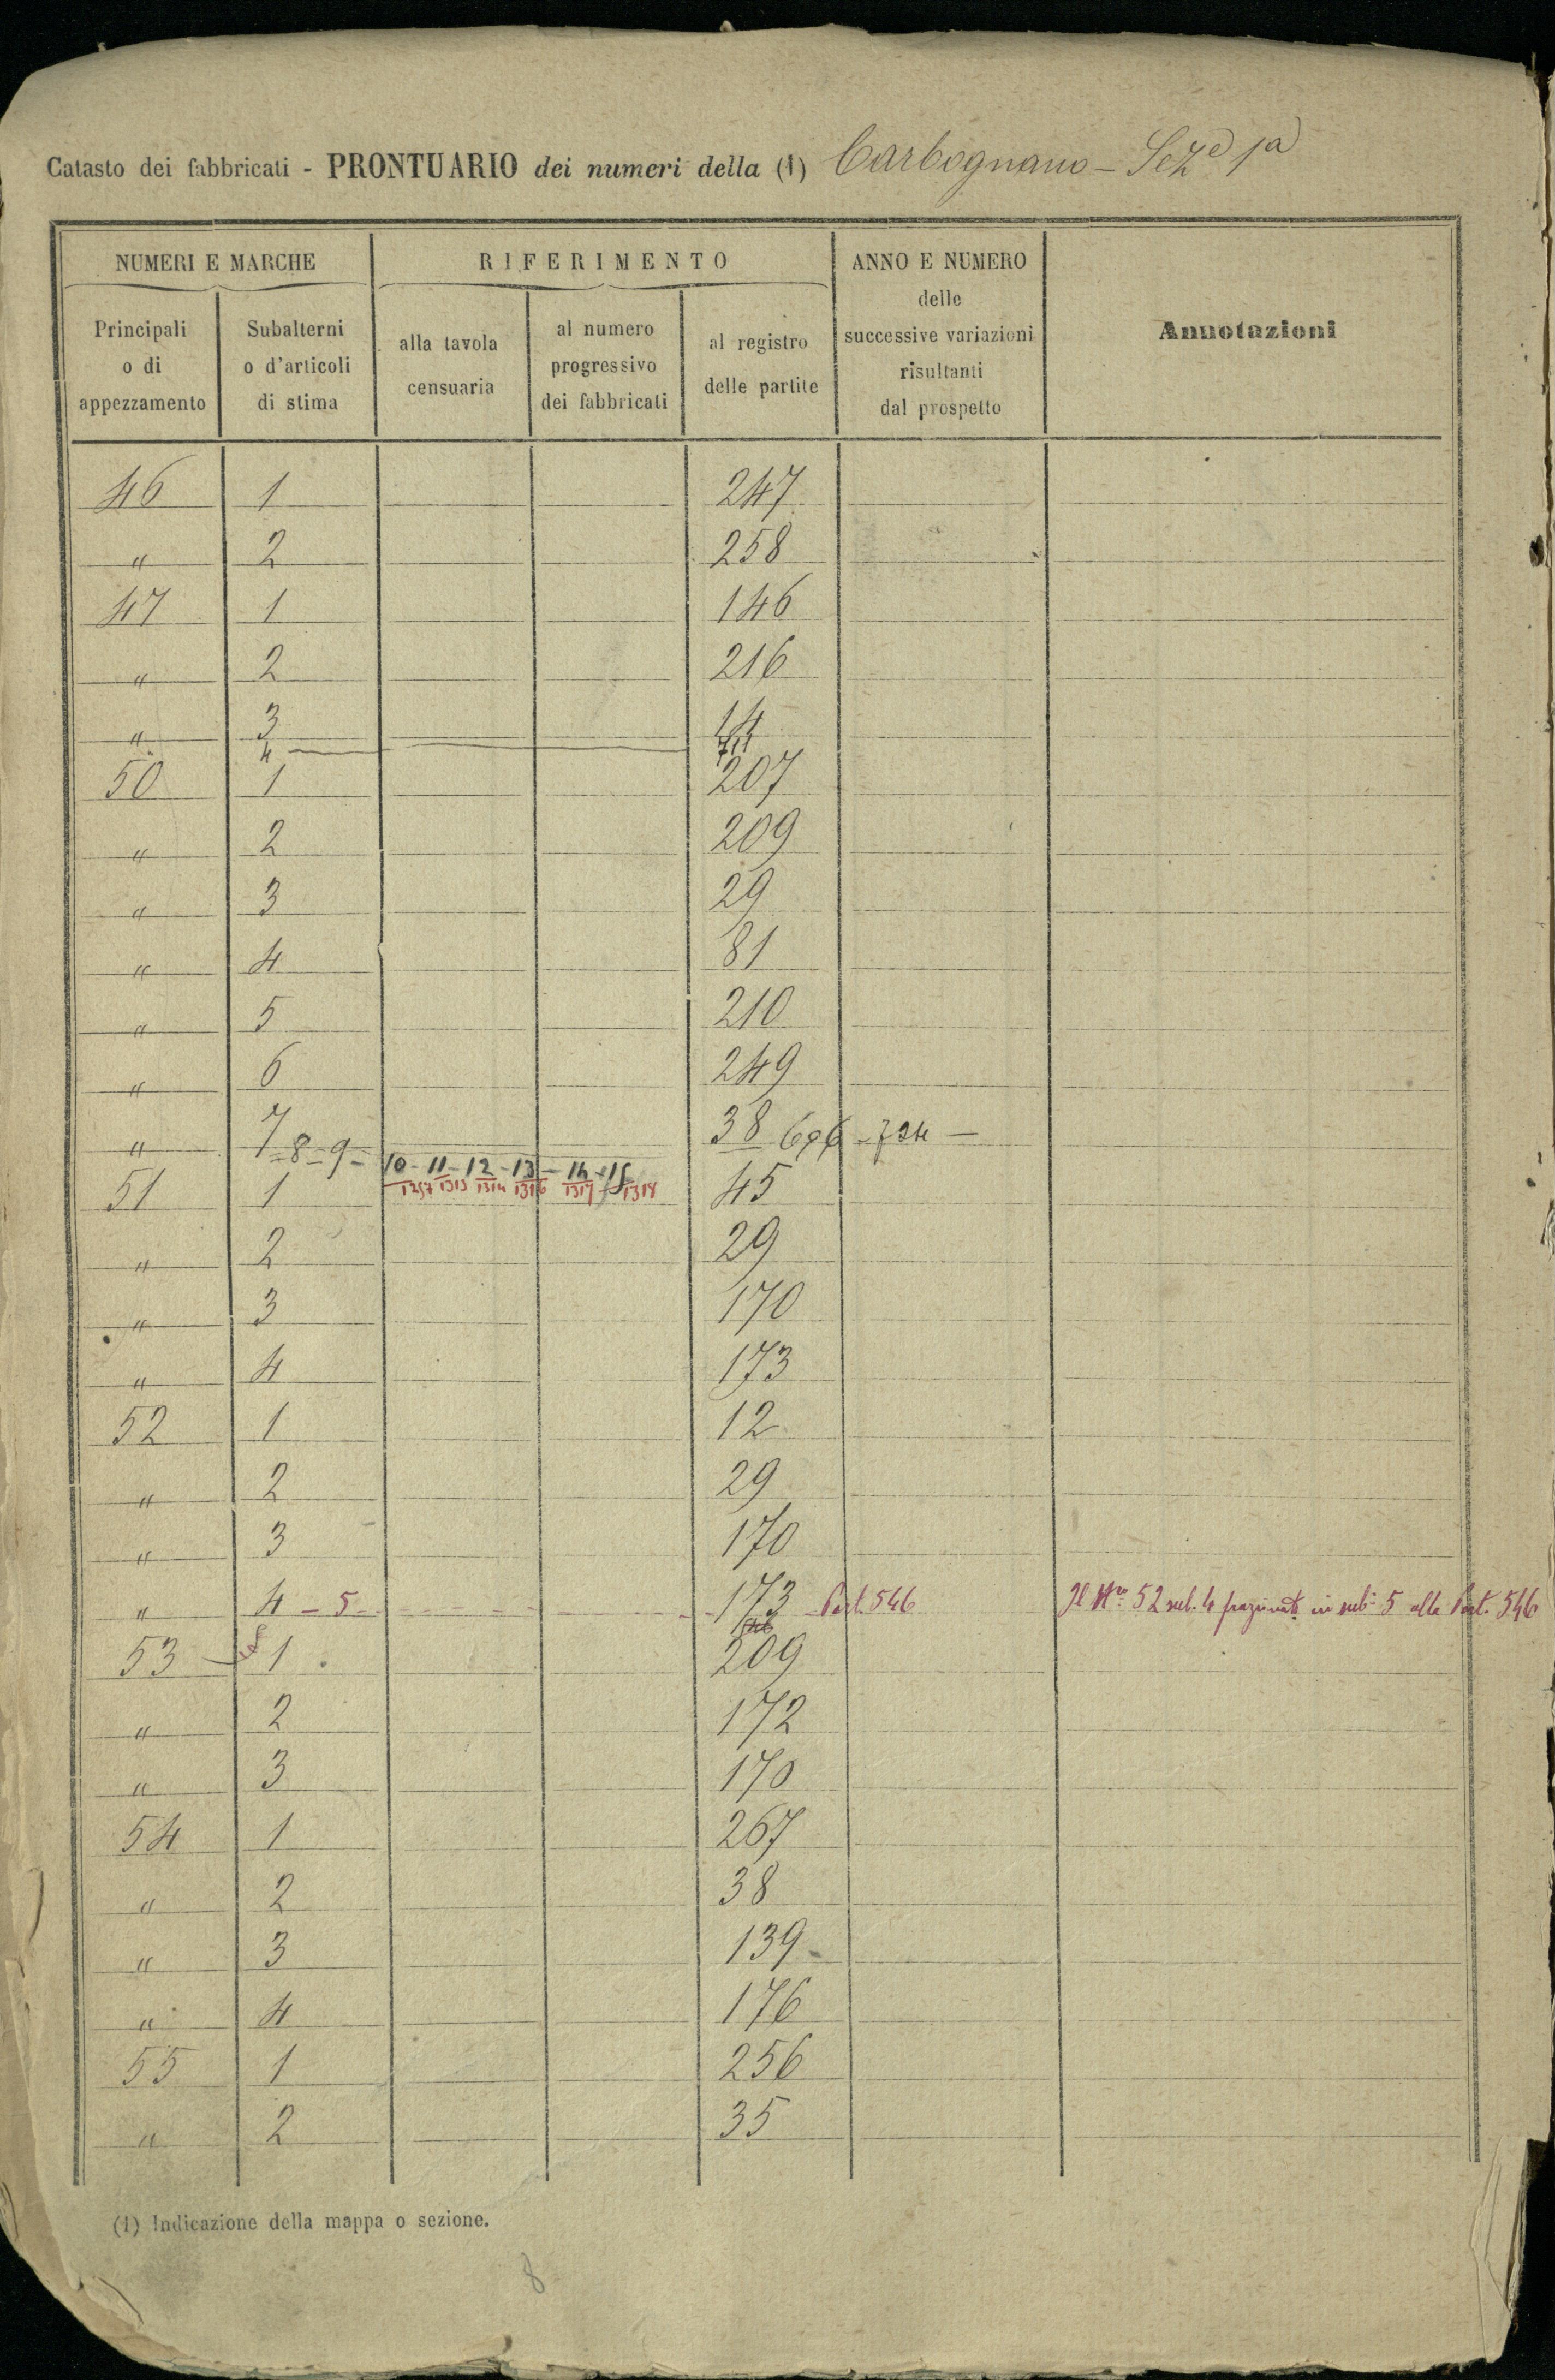 Catasto dei fabbricati - PRONTUARIO dei numeri della (1) Carbognano - Sez.e 1a
NUMERI E MARCHE RIFERIMENTO ANNO E NUMERO delle successive variazioni risultanti dal prospetto Annotazioni
Principali o di appezzamento Subalterni o d'articoli di stima alla tavola censuaria al numero progressivo dei fabbricati al registro delle partite
46 1 247
" 2 258
47 1 146
" 2 216
" 3 14
4 711
50 1 207
" 2 209
" 3 29
" 4 81
" 5 210
" 6 249
" 7-8-9- 38 696 -
10-11-12-13-14-15
1257 1313 1314 1316 1317 1318
51 1 45
" 2 29
" 3 170
" 4 173
52 1 12
" 2 29
" 3 170
" 4-5 173 Part. 546 Il Nro 52 sub. 4 frazionato in sub. 5 alla Part. 546
53 1 209
" 2 172
" 3 170
54 1 267
" 2 38
" 3 139
" 4 176
55 1 256
" 2 35
(1) Indicazione della mappa o sezione.
8